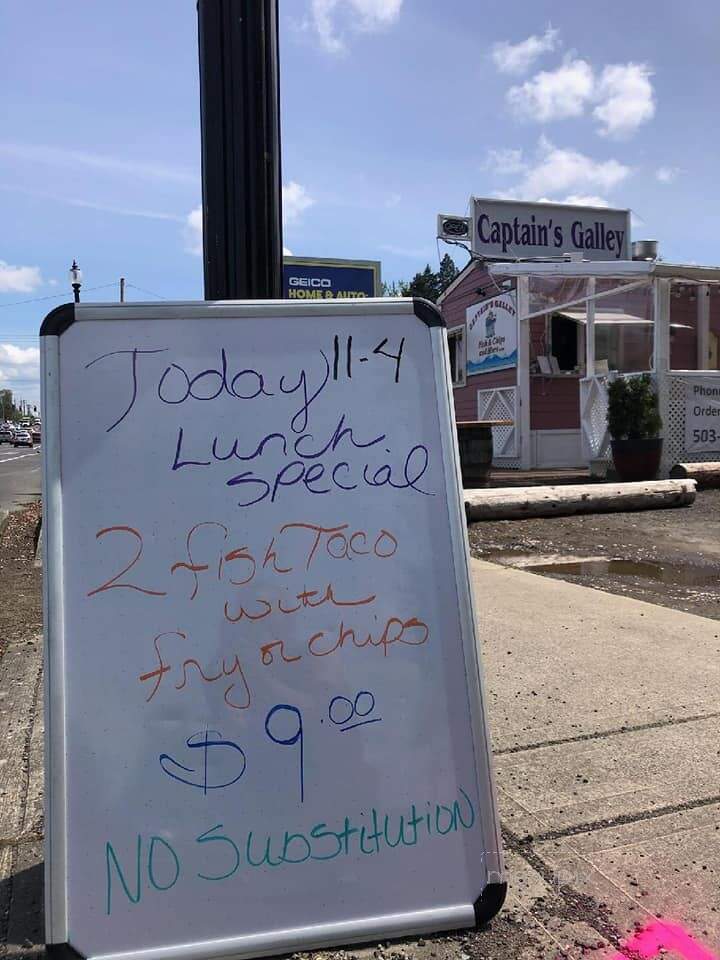 Today 11-4
Lunch
Special
2 fish Taco
with
fry or chips
$9.00
NO SUBSTITUTION
GEICO
HOME & AUTO
Captain's Galley
CAPTAIN'S GALLEY
Fish & Chips
and More
Phon
Order
503-